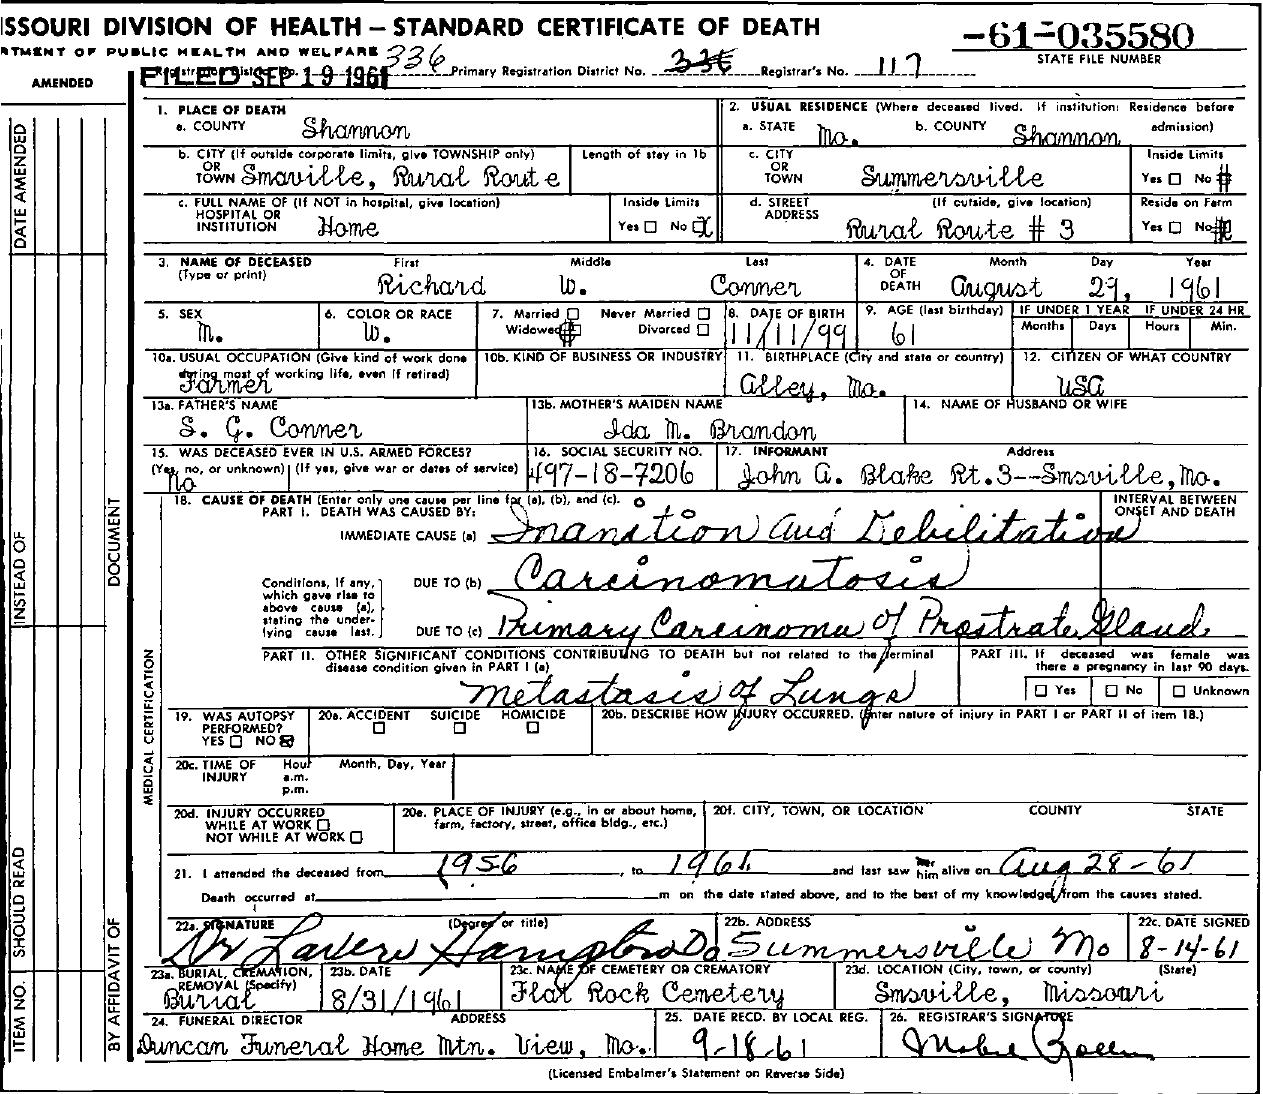 ISSOURI DIVISION OF HEALTH — STANDARD CERTIFICATE OF DEATH
-61-035580
STATE FILE NUMBER
RTMENT OF PUBLIC HEALTH AND WELFARE
AMENDED
FILED SEP 19 1961
336 Primary Registration District No. 336 Registrar's No. 117
DATE AMENDED
INSTEAD OF
SHOULD READ
ITEM NO.
DOCUMENT
BY AFFIDAVIT OF
MEDICAL CERTIFICATION
1. PLACE OF DEATH
a. COUNTY Shannon
2. USUAL RESIDENCE (Where deceased lived. If institution: Residence before admission)
a. STATE Mo. b. COUNTY Shannon
b. CITY (If outside corporate limits, give TOWNSHIP only)
OR
TOWN Smsville, Rural Route
Length of stay in 1b
c. CITY
OR
TOWN Summersville
Inside Limits
Yes □ No
c. FULL NAME OF (If NOT in hospital, give location)
HOSPITAL OR
INSTITUTION Home
Inside Limits
Yes □ No X
d. STREET
ADDRESS
(If outside, give location)
Rural Route # 3
Reside on Farm
Yes □ No
3. NAME OF DECEASED
(Type or print)
First Middle Last
Richard W. Conner
4. DATE
OF
DEATH
Month Day Year
August 29, 1961
5. SEX
M.
6. COLOR OR RACE
W.
7. Married □ Never Married □
Widowed Divorced □
8. DATE OF BIRTH
11/11/99
9. AGE (last birthday)
61
IF UNDER 1 YEAR
Months Days
IF UNDER 24 HR
Hours Min.
10a. USUAL OCCUPATION (Give kind of work done
during most of working life, even if retired)
Farmer
10b. KIND OF BUSINESS OR INDUSTRY
11. BIRTHPLACE (City and state or country)
Alley, Mo.
12. CITIZEN OF WHAT COUNTRY
USA
13a. FATHER'S NAME
S. G. Conner
13b. MOTHER'S MAIDEN NAME
Ida M. Brandon
14. NAME OF HUSBAND OR WIFE
15. WAS DECEASED EVER IN U.S. ARMED FORCES?
(Yes, no, or unknown) (If yes, give war or dates of service)
No
16. SOCIAL SECURITY NO.
497-18-7206
17. INFORMANT Address
John A. Blake Rt.3--Smsville, Mo.
18. CAUSE OF DEATH (Enter only one cause per line for (a), (b), and (c).
PART I. DEATH WAS CAUSED BY:
INTERVAL BETWEEN
ONSET AND DEATH
IMMEDIATE CAUSE (a) Inanition and Debilitation
Conditions, if any,
which gave rise to
above cause (a),
stating the under-
lying cause last.
DUE TO (b) Carcinomatosis
DUE TO (c) Primary Carcinoma of Prostrate Gland
PART II. OTHER SIGNIFICANT CONDITIONS CONTRIBUTING TO DEATH but not related to the terminal
disease condition given in PART I (a)
Metastasis of Lungs
PART III. If deceased was female was
there a pregnancy in last 90 days.
□ Yes □ No □ Unknown
19. WAS AUTOPSY
PERFORMED?
YES □ NO ☒
20a. ACCIDENT SUICIDE HOMICIDE
□ □ □
20b. DESCRIBE HOW INJURY OCCURRED. (Enter nature of injury in PART I or PART II of item 18.)
20c. TIME OF
INJURY
Hour
a.m.
p.m.
Month, Day, Year
20d. INJURY OCCURRED
WHILE AT WORK □
NOT WHILE AT WORK □
20e. PLACE OF INJURY (e.g., in or about home,
farm, factory, street, office bldg., etc.)
20f. CITY, TOWN, OR LOCATION COUNTY STATE
21. I attended the deceased from 1956, to 1961 and last saw her him alive on Aug 28-61
Death occurred at m on the date stated above, and to the best of my knowledge, from the causes stated.
22a. SIGNATURE (Degree or title)
Hampton Do
22b. ADDRESS
Summersville Mo
22c. DATE SIGNED
8-14-61
23a. BURIAL, CREMATION,
REMOVAL (Specify)
Burial
23b. DATE
8/31/1961
23c. NAME OF CEMETERY OR CREMATORY
Flat Rock Cemetery
23d. LOCATION (City, town, or county) (State)
Smsville, Missouri
24. FUNERAL DIRECTOR ADDRESS
Duncan Funeral Home Mtn. View, Mo.
25. DATE RECD. BY LOCAL REG.
9-18-61
26. REGISTRAR'S SIGNATURE
(Licensed Embalmer's Statement on Reverse Side)